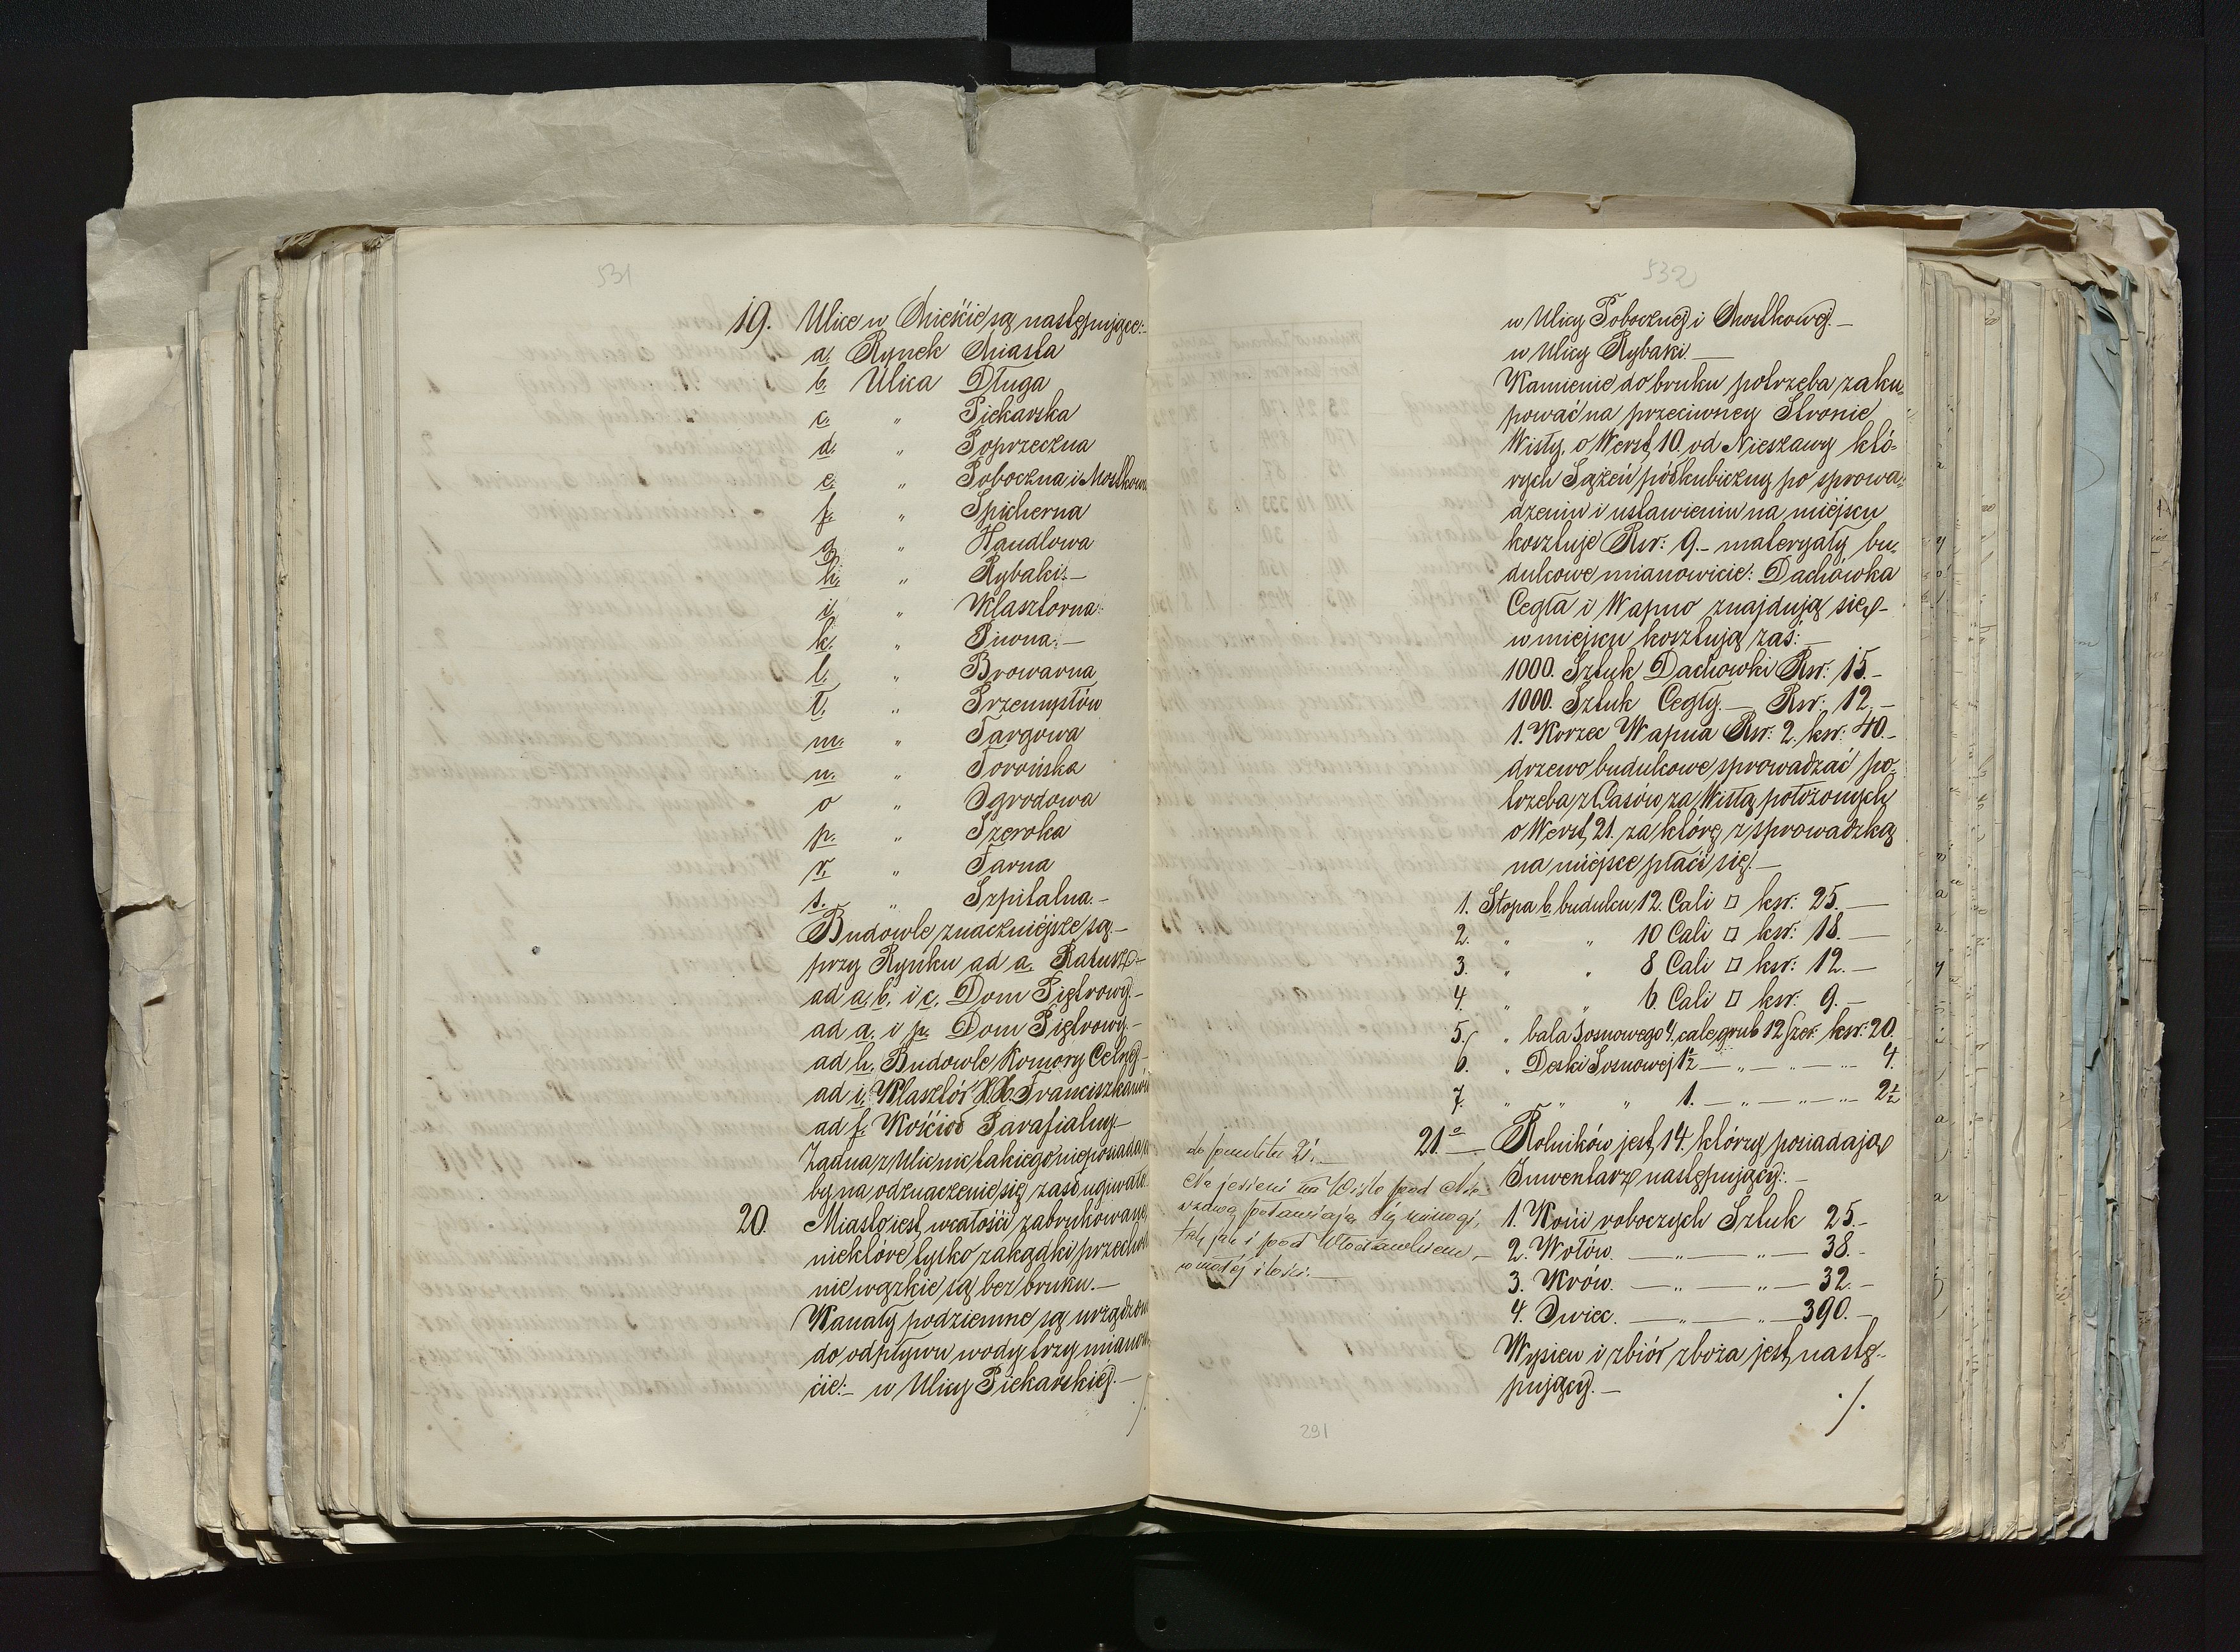 531
19. Ulice w Mieście są następujące:-
a. Rynek Miasta
b. Ulica Długa
c. " Piekarska
d. " Poprzeczna
e. " Poboczna i Mostkowa
f. " Spicherna
g. " Handlowa
h. " Rybaki.-
i. " Klasztorna:
k. " Piwna.-
l. " Browarna
ł. " Przemysłów
m. " Targowa
n. " Torońska
o " Ogrodowa
p. " Szeroka
r. " Farna
s. " Szpitalna.-
Budowle znaczniéjsze są.-
przy Rynku ad a. Ratusz.-
ad a, b. i c. Dom Piętrowy.-
ad a. i p. Dom Piętrowy.-
ad h. Budowle Komory Celnéj-
ad i. Klasztór X.X. Franciszkanów
ad f. Kościoł Parafialny.-
Żadna z Ulic nic takiego nieposiada
by na odznaczenie się zasługiwało.
20. Miasto jest w całości zabrukowane
niektóre tylko zakądki przecho
nie wązkie są bez bruku.-
Kanały podziemne są urządzone
do odpływu wody trzy mianow
cie:- w Ulicy Piekarskiéj.-
./.
532
w Ulicy Pobocznéj i Mostkowéj.-
w Ulicy Rybaki.-
Kamienie do bruku potrzeba zaku-
pować na przeciwney Stronie
Wisły, o Werst 10. od Nieszawy któ-
rych Sążeń półkubiczny po sprowa-
dzeniu i ustawieniu na miéjscu
kosztuje Rsr: 9.- materyały bu-
dulcowe mianowicie: Dachówka
Cegła i Wapno znajdują się-
w miejscu kosztują zaś:-
1000. Sztuk Dachowki Rsr: 15.-
1000. Sztuk Cegły.- Rsr: 12.-
1. Korzec Wapna Rsr: 2. ksr: 40.-
drzewo budulcowe sprowadzać po-
trzeba z Lasów za Wisłą położonych
o Werst 21. za które z sprowadzką
na miéjsce płaci się.-
1. Stopa b. budulcu 12. Cali □ ksr: 25.-
2. " " 10 Cali □ ksr: 18.-
3. " " 8 Cali □ ksr: 12.-
4. " " 6. Cali □ ksr: 9.-
5. " bala Sosnowego 4. cale grub 12 szer: ksr: 20.
6. " Deski Sosnowej 1½ — " — " — 4.
7. " " " 1. — " — " — 2½
21. Rolników jest 14. którzy posiadają
Inwentarz następujący:.-
1. Koni roboczych Sztuk 25.-
2. Wołów. — " — " — 38.-
3. Krów. — " — " — 32.-
4. Owiec. — " — " — 390.-
Wysiew i zbiór zboża jest nastę-
pujący.-
./.
do punktu 21.
Na jesieni na Wiśle pod Nie-
szawą poławiają się minogi,
tak jak i pod Włocławkiem,-
w małéj ilości.-
291